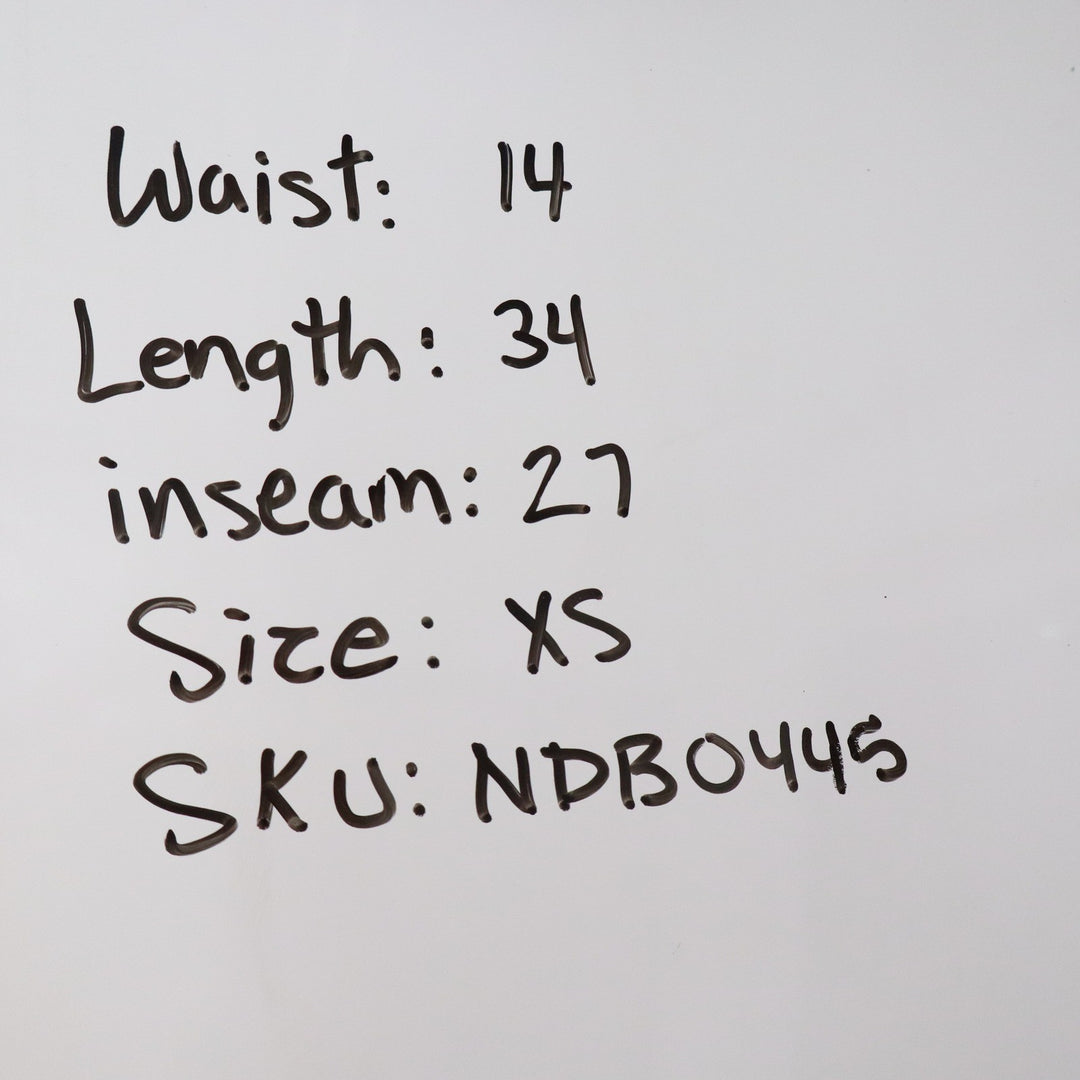 Waist: 14
Length: 34
inseam: 27
Size: XS
SKU: NDB0445